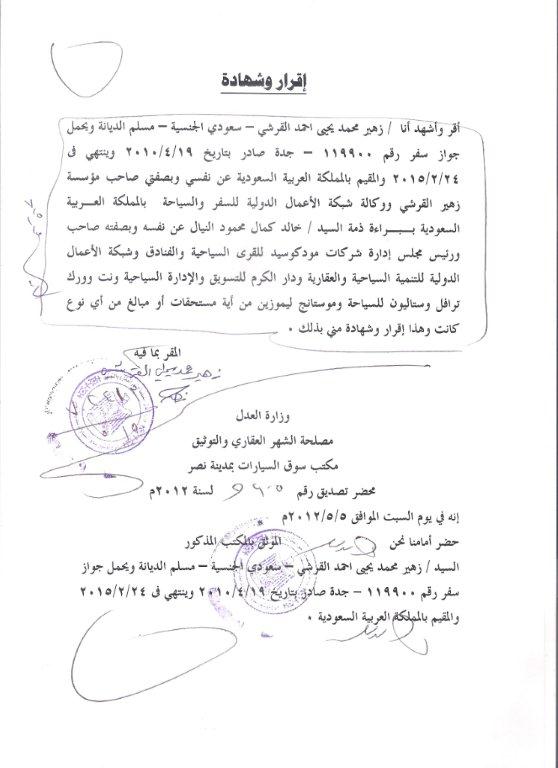 إقرار وشهادة
أقر وأشهد أنا / زهير محمد يحيى احمد القرشي – سعودي الجنسية – مسلم الديانة ويحمل
جواز سفر رقم ١١٩٩٠٠ – جدة صادر بتاريخ ٢٠١٠/٤/١٩ وينتهي فى
٢٠١٥/٢/٢٤ والمقيم بالمملكة العربية السعودية عن نفسي وبصفتي صاحب مؤسسة
زهير القرشي ووكالة شبكة الأعمال الدولية للسفر والسياحة بالمملكة العربية
السعودية ببراءة ذمة السيد / خالد كمال محمود النيال عن نفسه وبصفته صاحب
ورئيس مجلس إدارة شركات مودكوسيد للقرى السياحية والفنادق وشبكة الأعمال
الدولية للتنمية السياحية والعقارية ودار الكرم للتسويق والإدارة السياحية ونت وورك
ترافل وستاليون للسياحة وموستانج ليموزين من أية مستحقات أو مبالغ من أي نوع
كانت وهذا إقرار وشهادة مني بذلك .
المقر بما فيه
وزارة العدل
مصلحة الشهر العقاري والتوثيق
مكتب سوق السيارات بمدينة نصر
محضر تصديق رقم لسنة ٢٠١٢م
إنه في يوم السبت الموافق ٢٠١٢/٥/٥م
حضر أمامنا نحن الموثق بالمكتب المذكور
السيد / زهير محمد يحيى احمد القرشي – سعودي الجنسية – مسلم الديانة ويحمل جواز
سفر رقم ١١٩٩٠٠ – جدة صادر بتاريخ ٢٠١٠/٤/١٩ وينتهي فى ٢٠١٥/٢/٢٤
والمقيم بالمملكة العربية السعودية .